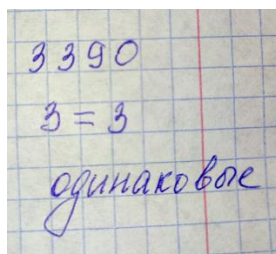 3390
3 = 3
одинаковые